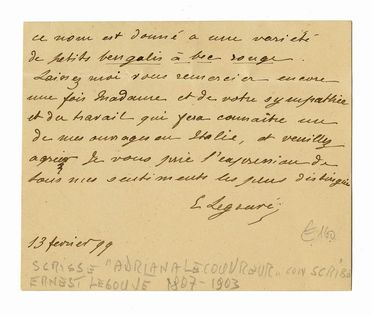 ce nom est donné a une variété
de petits bengalis à bec rouge.
Laissez moi vous remercier encore
une fois Madame et de votre sympathie
et du travail qui fera connaître un
de mes ouvrages en Italie, et veuillez
agréer je vous prie l'expression de
tous mes sentiments les plus distingués
E Legouvé
13 février 99
£ 160
SCRISSE "ADRIANA LECOUVREUR" CON SCRIBE
ERNEST LEGOUVE 1807-1903